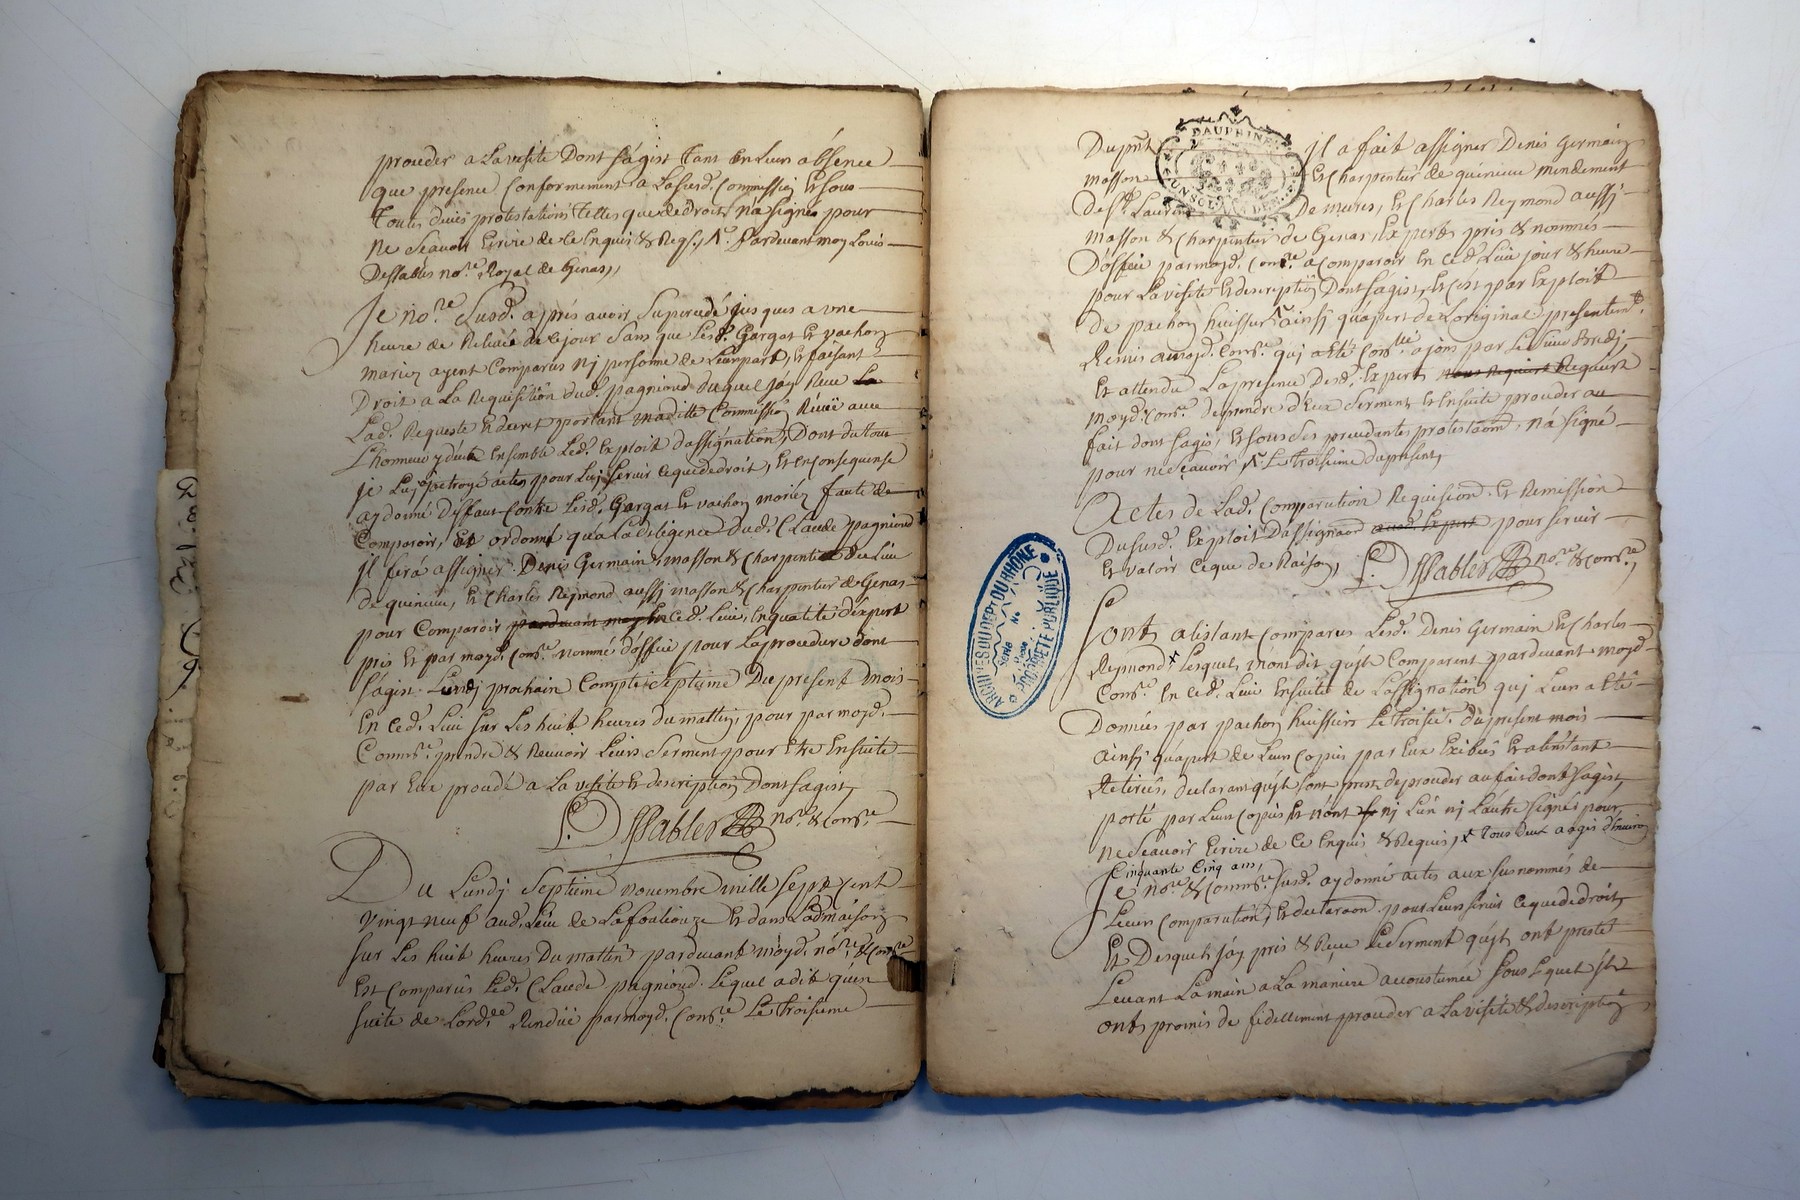 proceder a la visite Dont s'agist tant en leur absence
que presence conformement a la susd. commission et sous
toutes dues protestations telles que de droit, n'a signé pour
ne scavoir ecrire de ce enquis & req.
par devant moy Louis
Dessables no.re Royal de Genas,
Je no.re susd. apres avoir supercedé jusques a une
heure de relevée de ce jour sans que lesd. Gargat et vachon
mariez ayent comparus nj personne de leur part, et faisant
Droit a la requisition dud. pagnioud duquel j'ay receu
Lad. Requeste decret portant madite commission Reçüe avec
L'honneur y deub ensemble led. exploit d'assignation, Dont du tout
je luy octroyé actes pour luj servir ce que de droit, et en consequense
ay donné deffaut contre lesd. Gargat et vachon mariez faute de
Comparoir, et ordonné qu'a la diligence dud. Claude pagnioud
il sera assigner Denis Germain masson & charpentier du lieu
de quincieu, et Charles Reymond aussj masson & charpentier de Genas
pour Comparoir pardevant moy en ced. lieu, en qualité d'expert
pris et par moyd. com.re nommé d'office pour la procedure dont
s'agist Lundj prochain compté septieme Du present mois
en ced. lieu sur les huit heures du mattin, pour par moyd.
Comm.re prendre & recevoir leurs serment pour être ensuite
par eux procedé a la visite et description Dont s'agist,
Dessables no.re & com.re
Du Lundj septieme novembre mille sept cent
vingt neuf aud. lieu de Lafouliouze et dans lad. maison
sur les huit heures du mattin pardevant moyd. no.re & com.re
est comparus led. Claude pagnioud lequel a dit qu'en
suite de l'ord.ce rendüe par moyd. com.re le troisieme
DAUPHINE
Du p.nt il a fait assigner Denis Germain
masson et charpentier de quincieu mendement
de St. Laurent De mures, et Charles Reymond aussj
masson & charpentier de Genas experts pris & nommés
D'office par moyd. com.re a comparoir en ced. lieu jour & heure
pour la visite et description Dont s'agist, et c'est par exploit
de pachon huissier ainsj qu'apert de l'original presentem.t
Remis a moyd. com.re
et attendu la presence desd. experts Requiert
moyd. com.re de prendre d'eux serment et ensuite proceder au
fait dont s'agis, et sous les precedantes protestaons, n'a signé
pour ne scavoir le troisieme du present,
Actes de lad. comparution Requision et Remission
Du susd. exploit D'assignaon aud. expert pour servir
et valoir ce que de raison,
Dessables no.re & com.re,
Sont a l'istant comparus lesd. Denis Germain et Charles
Reymond lesquels m'ont dit qu'ils comparent pardevant moyd.
Com.re en ced. lieu ensuite de l'assignation quj leur a été
Donnée par pachon huissier le troisie. du present mois
ainsj qu'apert de leurs copies par eux exibées et a l'instant
Retirées, declarant qu'ils sont prest de proceder au fait dont s'agist,
porté par leurs copies et n'ont nj l'un nj l'autre signés pour
ne scavoir ecrire de ce enquis & requis, x tous deux aagés d'environ
Cinquante cinq ans,
Je no.re & comm.re susd. ay donné actes aux susnommés de
leurs comparution, et declaraon pour leurs servir ce que de droit,
et Desquels j'ay pris & receu le serment qu'ils ont presté
Levant la main a la maniere accoustumée sous lequel ils
ont promis de fidellement proceder a la visite & description
ARCHIVES DU DEPT DU RHÔNE
Série No
PROPRIÉTÉ PUBLIQUE